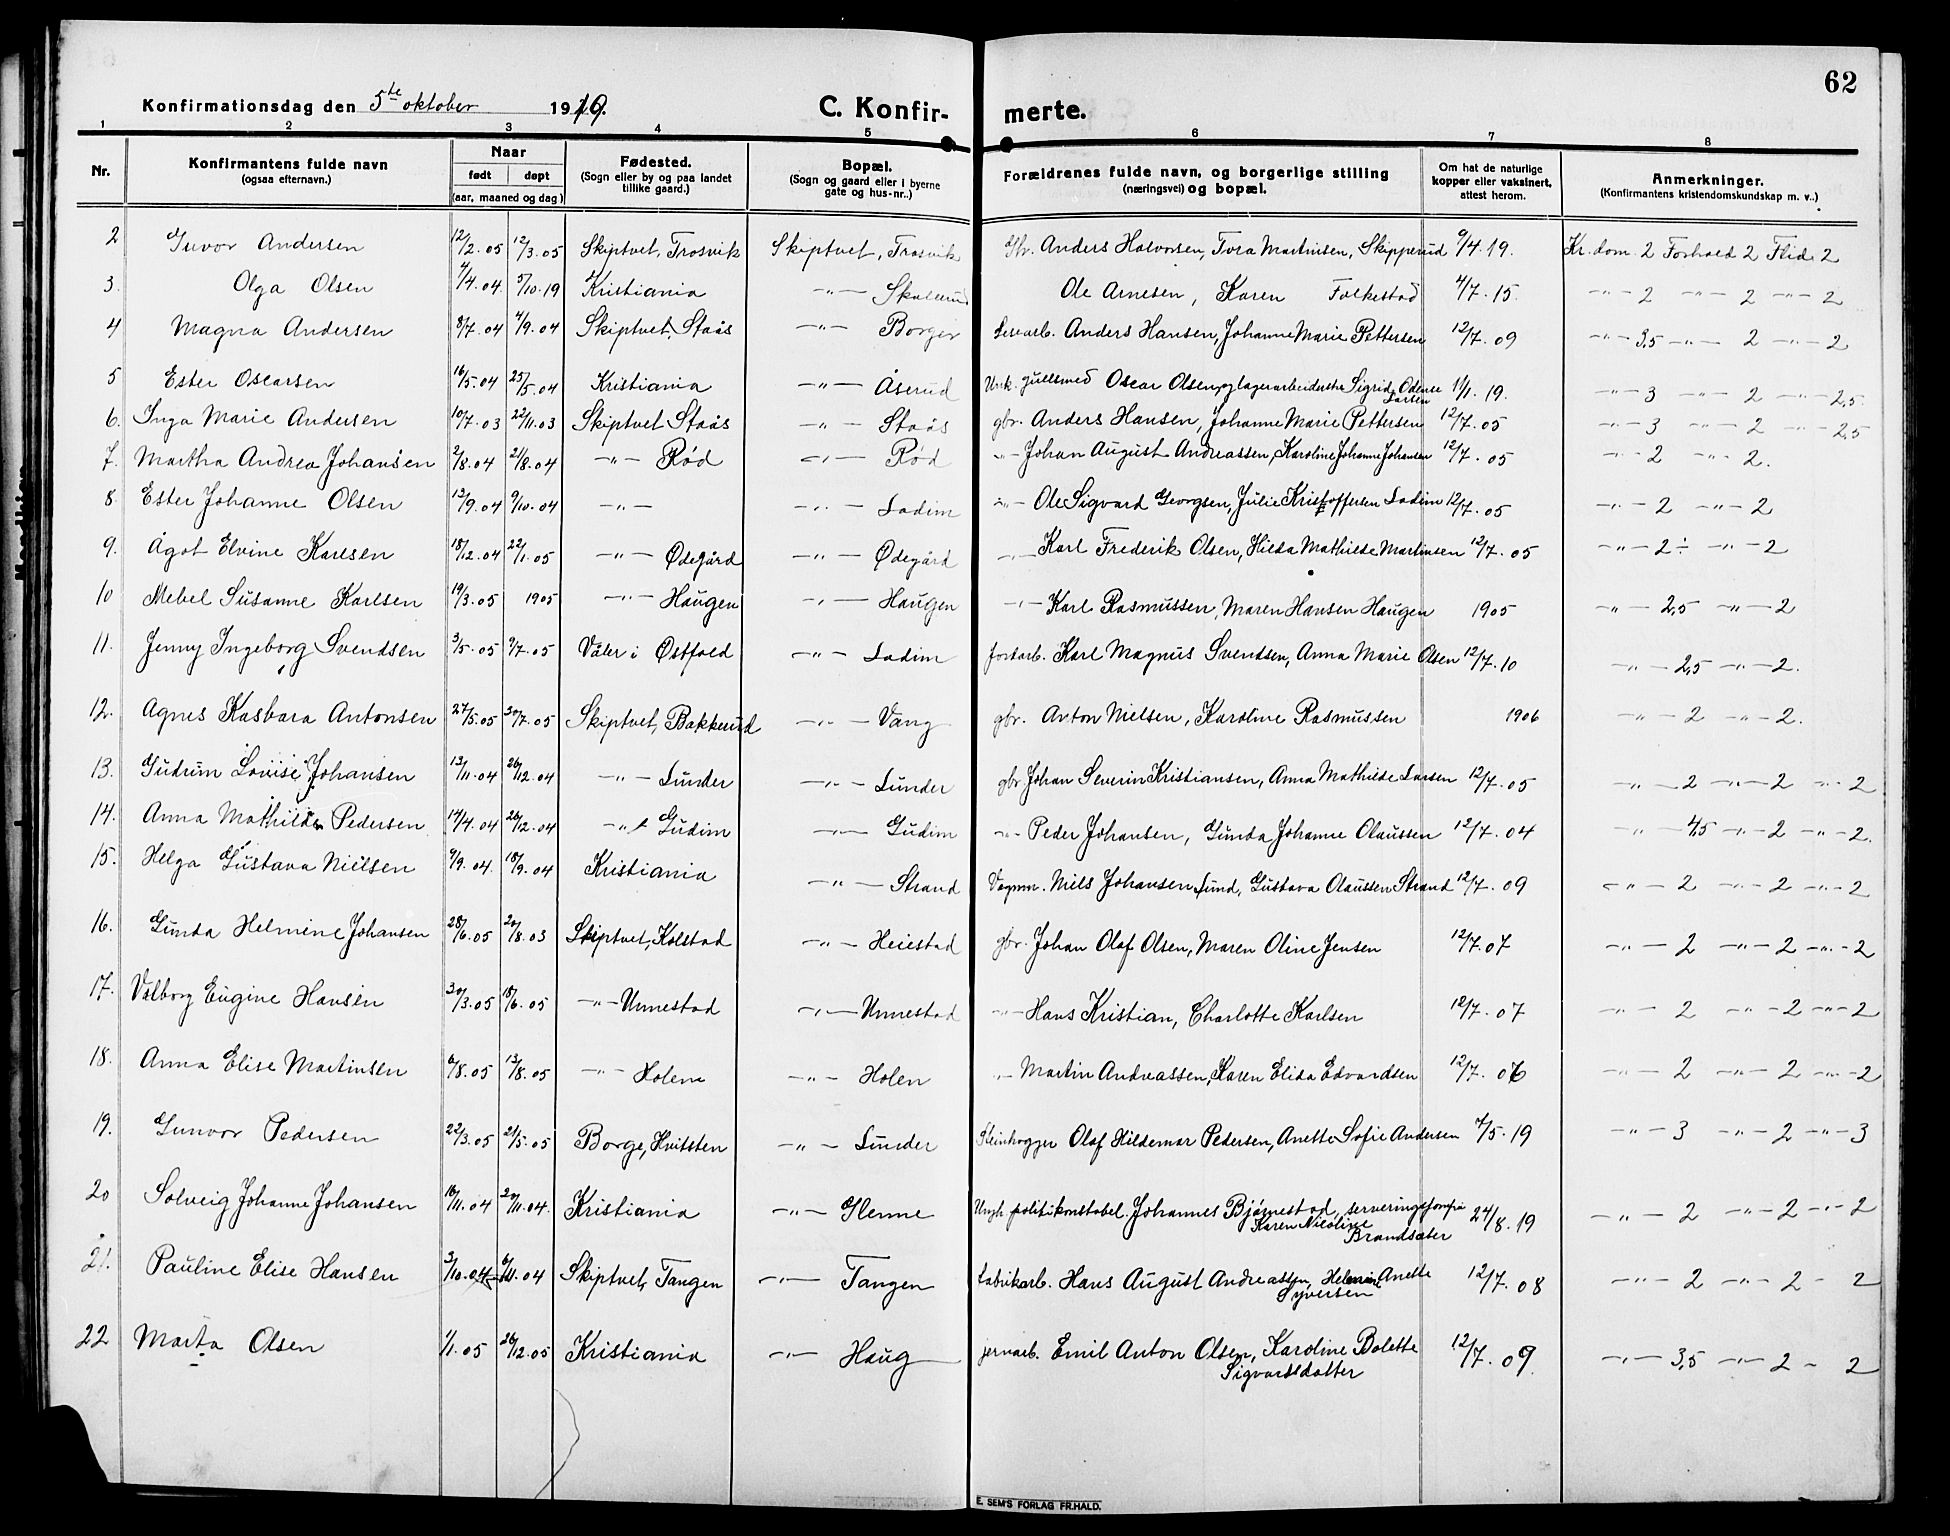 62
Konfirmationsdag den 5te oktober 1919.
C. Konfirmerte.
1 2 3 4 5 6 7 8
Nr. Konfirmantens fulde navn (ogsaa efternavn.) Naar født døpt (aar, maaned og dag) Fødested. (Sogn eller by og paa landet tillike gaard.) Bopæl. (Sogn og gaard eller i byerne gate og hus-nr..) Forældrenes fulde navn, og borgerlige stilling (næringsvei) og bopæl. Om hat de naturlige kopper eller vaksinert, attest herom. Anmerkninger. (Konfirmantens kristendomskundskap m. v..)
2 Guvor Andersen 12/2.05 12/3.05 Skiptvet, Trosvik Skiptvet, Trosvik Gbr. Anders Halvorsen, Tora Martinsen, Skipperud 9/4.19. Kr.dom. 2 Forhold 2 Flid 2
3. Olga Olsen 4/4.04 5/10.19 Kristiania -"- Skalerud Ole Arnesen, Karen Folkestad 4/7.15. -"- 2 -"- 2 -"- 2
4 Magna Andersen 8/7.04 4/9.04 Skiptvet, Staås -"- Borger Leiearb. Anders Hansen, Johanne Marie Pettersen 12/7.09 -"- 3,5 -"- 2 -"- 2
5 Ester Oscarsen 16/5.04 25/5.04 Kristiania -"- Åserud Unk. gullsmed Oscar Olsen, og lagerarbeiderske Sigrid Odense Larsen 11/1.19. -"- 3 -"- 2 -"- 2,5
6. Inga Marie Andersen 10/7.03 22/11.03 Skiptvet Staås -"- Staås gbr. Anders Hansen, Johanne Marie Pettersen 12/7.05 -"- 3 -"- 2 -"- 2,5
7. Martha Andrea Johansen 2/8.04 21/8.04 -"- Rød -"- Rød -"- Johan August Andreassen, Karoline Johanne Johansen 12/7.05 -"- 2 -"- 2.
8. Ester Johanne Olsen 13/9.04 9/10.04 -"- -"- Ladim -"- Ole Sigvard Georgsen, Julie Kristoffersen Ladim 12/7.05 -"- 2 -"- 2
9. Ågot Elvine Karlsen 18/12.04 22/1.05 -"- Ødegård -"- Ødegård -"- Karl Frederik Olsen, Hilda Mathilde Martinsen 12/7.05 -"- 2÷ -"- 2
10 Mebel Susanne Karlsen 19/3.05 1905 -"- Haugen -"- Haugen -"- Karl Rasmussen, Maren Hansen Haugen 1905 -"- 2,5 -"- 2
11. Jenny Ingeborg Svendsen 3/5.05 9/7.05 Våler i Østfold -"- Ladim forbarb. Karl Magnus Svendsen, Anna Marie Olsen 12/7.10 -"- 2,5 -"- 2.
12. Agnes Kasbara Antonsen 27/5.05 30/7.05 Skiptvet, Bakkerud -"- Vang gbr. Anton Nielsen, Karoline Rasmussen 1906 -"- 2 -"- 2.
13. Gudrun Lovise Johansen 13/11.04 26/12.04 -"- Lunder -"- Lunder gbr Johan Severin Kristiansen, Anna Mathilde Larsen 12/7.05 -"- 2 -"- 2 -"- 2
14. Anna Mathilde Pedersen 14/4.04 26/12.04 -"- Gudim -"- Gudim -"- Peder Johansen, Gunda Johanne Olaussen 12/7.04 -"- 4,5 -"- 2 -"- 2.
15. Helga Gustava Nielsen 9/9.04. 18/9.04 Kristiania -"- Strand Vognm. Nils Johansen Lund, Gustava Olaussen Strand 12/7.09 -"- 2 -"- 2 -"- 2
16. Gunda Helmine Johansen 28/6.05 20/8.03 Skiptvet, Kolstad -"- Heiestad gbr. Johan Olaf Olsen, Maren Oline Jensen 12/7.07 -"- 2 -"- 2 -"- 2
17. Valborg Eugine Hansen 30/3.05 18/6.05 -"- Unnestad -"- Unnestad -"- Hans Kristian, Charlotte Karlsen 12/7.07 -"- 2 -"- 2 -"- 2
18. Anna Elise Martinsen 6/8.05 13/8.05 -"- Holene -"- Holen -"- Martin Andreassen, Karen Elida Edvardsen 12/7.06 -"- 2 -"- 2 -"- 2
19. Gunvor Pedersen 22/3.05 21/5.05 Borge, Hvitsten -"- Lunder Steinhogger Olaf Hildemar Pedersen, Anette Sofie Andersen 4/5.19 -"- 3 -"- 2 -"- 3
20 Solveig Johanne Johansen 16/11.04 20/11.04. Kristiania -"- Glenne Ungk. politikonstabel. Johannes Bjørnestad, serveringsjomfru Karen Nicoline Brandsæter 24/8.19 -"- 2 -"- 2 -"- 2
21. Pauline Elise Hansen 3/10.04 6/11.04 Skiptvet, Tangen -"- Tangen fabrikarb. Hans August Andreassen, Helmine Anette Syversen 12/7.08 -"- 2 -"- 2 - 2
22 Marta Olsen 1/1.05 26/12.05 Kristiania -"- Haug jernarb. Emil Anton Olsen, Karoline Bolette Sigvartsdatter 12/7.09. -"- 3,5 -"- 2 - 2
E. SEM'S FORLAG FR.HALD.